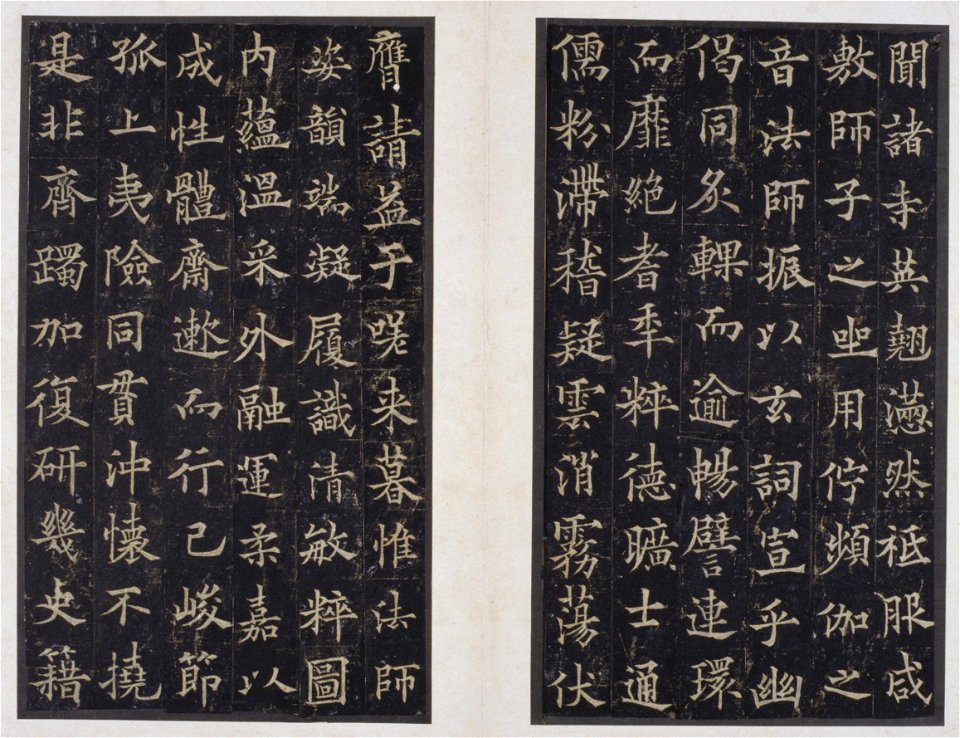 聞諸寺英翹懣然祗服咸
敷師子之坐用佇頻伽之
音法師振以玄詞宣乎幽
偈同炙輠而逾暢譬連環
而靡絶耆年粹德曠士通
儒粉滯稽疑雲消霧蕩伏
膺請益于嗟来暮惟法師
姿韻端凝履識清敏粹圖
内蘊温采外融運柔嘉以
成性體齋遬而行己峻節
孤上夷險同貫沖懷不撓
是非齊躅加復研幾史籍